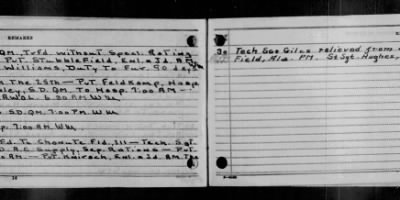 REMARKS
QM. Trfd without Specl. Rating
Pvt Stubblefield, Enl. a Id. AM
Williams, Duty To Fur. 90 days
The 25th — Pvt Feldkamp, Hosp
S.D. QM. To Hosp. 7:00 AM —
AWOL 6:30 AM WM
S.D. QM. 7:00 PM WM
7:00 AM WM
Fd. To Chanute Fld, Ill — Tech. Sgt
Supply, Sep. Rations — Pvt
AM. — Pvt. Kairsch, Enl. a Id. AM The
REMARKS
30 Tech Sgt Giles relieved from
Field, Ala. PM. St. Sgt. Hughes,